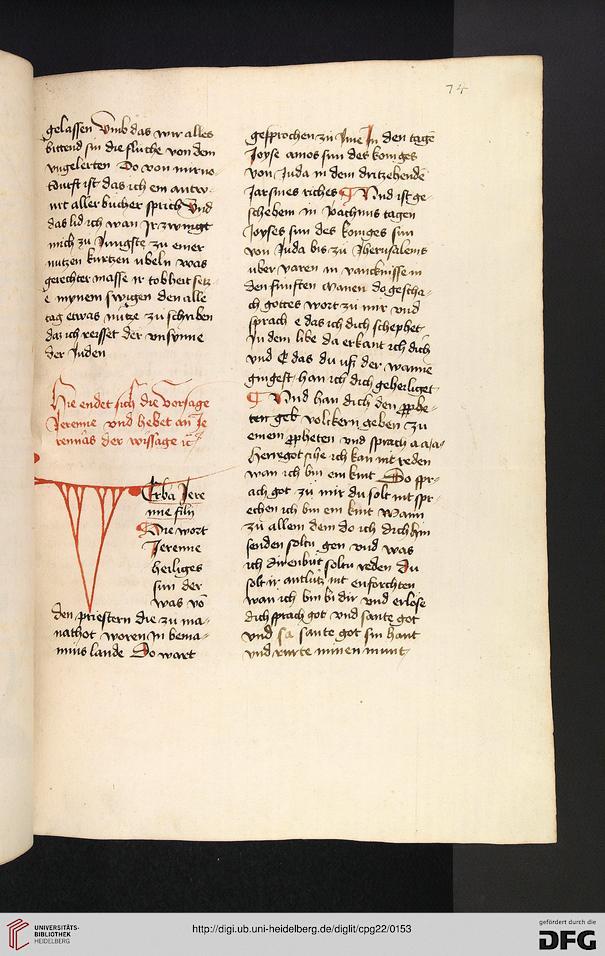 74
gelassen Vmb das wir alles
bittend sin die fluche von den
vngelerten Do von mir no
durft ist das ich em antw-
urt aller bucher sprich Vnd
das lid ich wan Jr zwingt
mich zu Jungste zu einer
nutzen kurtzen ubeln was
gerechter masse ir tobheit setz-
e mynem swigen den alle
tag etwas nutze zu schriben
daz ich reisset der vnsynne
der Juden
Hie endet sich die Vorsage
Jeremie vnd hebet an Je
remias der wissage
Verba Jere
mie filij
Die wort
Jeremie
heiliges
sun der
was vō
den priestern die zu ma-
nathot woren in bema-
mius lande Do wart
gesprochen zu Jme Jn den tagē
Joyse amos sun des koniges
von Juda in dem dritzehende
Jarsines riches Vnd ist ge-
schehem in Joachims tagen
Joyses sun des koniges sun
von Juda bis zu Jherusalems
uber varen in vancknisse in
den funften manen do gescha-
ch gottes wort zu mir vnd
sprach e das ich dich schephet
Jn dem libe da erkant ich dich
vnd E das du uß der wamme
gingest han ich dich geheiliget
Vnd han dich den ꝓphe-
ten geb volkern geben zu
einem ꝓpheten vnd sprach a a a
Herregot sihe ich kan nit reden
wan ich bin em kint Do spr-
ach got zu mir du solt nit spr-
echen ich bin em kint Wann
zu allem dem do ich dich hin
senden soltu gen vnd was
ich dir enbut soltu reden Du
solt ir antlutz nit enforchten
wan ich bin bi dir vnd erlose
dich sprach got vnd sante got
vnd sa sante got sin hant
vnd rurte minen munt
UNIVERSITÄTS-
BIBLIOTHEK
HEIDELBERG
http://digi.ub.uni-heidelberg.de/diglit/cpg22/0153
gefördert durch die
DFG